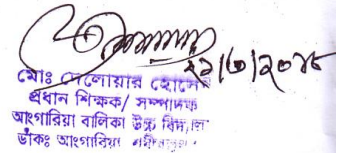 ২১/৩/২০১৮
মোঃ দেলোয়ার হোসেন
প্রধান শিক্ষক/ সম্পাদক
আংগারিয়া বালিকা উচ্চ বিদ্যালয়
ডাকঃ আংগারিয়া